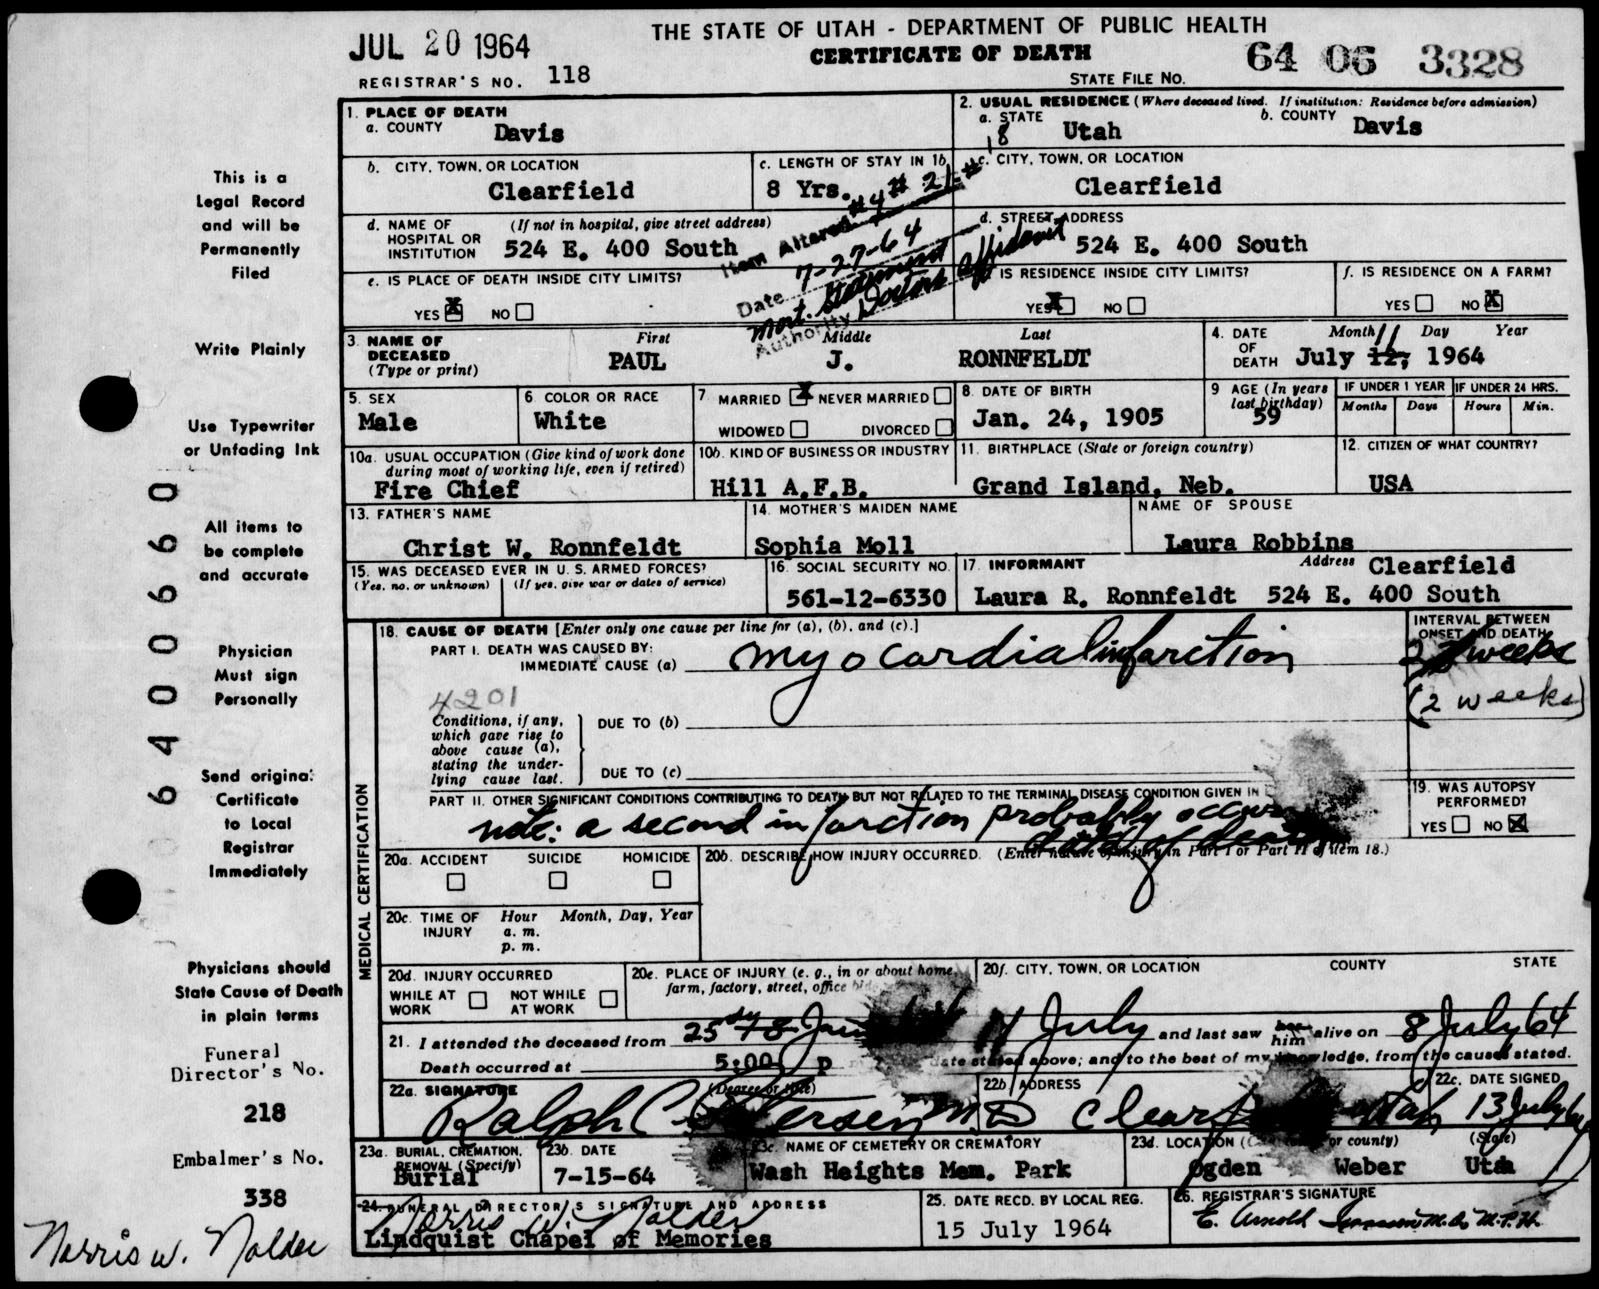 JUL 20 1964
THE STATE OF UTAH - DEPARTMENT OF PUBLIC HEALTH
CERTIFICATE OF DEATH
64 06 3328
REGISTRAR'S NO. 118
STATE FILE NO.
This is a
Legal Record
and will be
Permanently
Filed
Write Plainly
Use Typewriter
or Unfading Ink
All items to
be complete
and accurate
Physician
Must sign
Personally
Send original
Certificate
to Local
Registrar
Immediately
Physicians should
State Cause of Death
in plain terms
Funeral
Director's No.
218
Embalmer's No.
338
Norris W. Nalder
64006660
1. PLACE OF DEATH
a. COUNTY Davis
2. USUAL RESIDENCE (Where deceased lived. If institution: Residence before admission)
a. STATE Utah
b. COUNTY Davis
b. CITY, TOWN, OR LOCATION
Clearfield
c. LENGTH OF STAY IN 1b
8 Yrs.
c. CITY, TOWN, OR LOCATION
Clearfield
d. NAME OF HOSPITAL OR INSTITUTION (If not in hospital, give street address)
524 E. 400 South
d. STREET ADDRESS
524 E. 400 South
Item Altered #4 # 21 # 18
Date 7-27-64
Mort. Statement
Authority Doctors affidavit
e. IS PLACE OF DEATH INSIDE CITY LIMITS?
YES X NO
IS RESIDENCE INSIDE CITY LIMITS?
YES X NO
f. IS RESIDENCE ON A FARM?
YES NO X
3. NAME OF DECEASED (Type or print)
First Middle Last
PAUL J. RONNFELDT
4. DATE OF DEATH
Month Day Year
July 12, 11 1964
5. SEX
Male
6. COLOR OR RACE
White
7 MARRIED X NEVER MARRIED
WIDOWED DIVORCED
8. DATE OF BIRTH
Jan. 24, 1905
9 AGE (In years last birthday)
59
IF UNDER 1 YEAR IF UNDER 24 HRS.
Months Days Hours Min.
10a. USUAL OCCUPATION (Give kind of work done during most of working life, even if retired)
Fire Chief
10b. KIND OF BUSINESS OR INDUSTRY
Hill A.F.B.
11. BIRTHPLACE (State or foreign country)
Grand Island, Neb.
12. CITIZEN OF WHAT COUNTRY?
USA
13. FATHER'S NAME
Christ W. Ronnfeldt
14. MOTHER'S MAIDEN NAME
Sophia Moll
NAME OF SPOUSE
Laura Robbins
15. WAS DECEASED EVER IN U.S. ARMED FORCES?
(Yes, no, or unknown) (If yes, give war or dates of service)
16. SOCIAL SECURITY NO.
561-12-6330
17. INFORMANT Address Clearfield
Laura R. Ronnfeldt 524 E. 400 South
MEDICAL CERTIFICATION
18. CAUSE OF DEATH [Enter only one cause per line for (a), (b), and (c).]
PART I. DEATH WAS CAUSED BY:
IMMEDIATE CAUSE (a) myocardial infarction
INTERVAL BETWEEN ONSET AND DEATH
2 weeks
(2 weeks)
4201
Conditions, if any, which gave rise to above cause (a), stating the underlying cause last.
DUE TO (b)
DUE TO (c)
PART II. OTHER SIGNIFICANT CONDITIONS CONTRIBUTING TO DEATH BUT NOT RELATED TO THE TERMINAL DISEASE CONDITION GIVEN IN
note: a second infarction probably
date of death
19. WAS AUTOPSY PERFORMED?
YES NO X
20a. ACCIDENT SUICIDE HOMICIDE
20b. DESCRIBE HOW INJURY OCCURRED. (Enter nature of injury in Part I or Part II of item 18.)
20c. TIME OF INJURY
Hour Month, Day, Year
a. m.
p. m.
20d. INJURY OCCURRED
WHILE AT WORK NOT WHILE AT WORK
20e. PLACE OF INJURY (e. g., in or about home, farm, factory, street, office
20f. CITY, TOWN, OR LOCATION COUNTY STATE
21. I attended the deceased from 25 11 July and last saw him alive on 8 July 64
Death occurred at 5:00 p date stated above; and to the best of my knowledge, from the causes stated.
22a. SIGNATURE (Degree or title)
Ralph C. M D
22b. ADDRESS
Utah
22c. DATE SIGNED
13 July 64
23a. BURIAL, CREMATION, REMOVAL (Specify)
Burial
23b. DATE
7-15-64
23c. NAME OF CEMETERY OR CREMATORY
Wash Heights Mem. Park
23d. LOCATION or county) (State)
Ogden Weber Utah
24. FUNERAL DIRECTOR'S SIGNATURE AND ADDRESS
Norris W. Nalder
Lindquist Chapel of Memories
25. DATE RECD. BY LOCAL REG.
15 July 1964
26. REGISTRAR'S SIGNATURE
E. Arnold M.D. M.P.H.